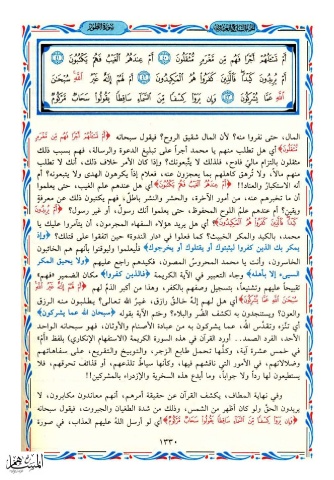 سورة الطور
أَمْ تَسْأَلُهُمْ أَجْرًا فَهُم مِّن مَّغْرَمٍ مُّثْقَلُونَ ﴿٤٠﴾ أَمْ عِندَهُمُ الْغَيْبُ فَهُمْ يَكْتُبُونَ ﴿٤١﴾
أَمْ يُرِيدُونَ كَيْدًا فَالَّذِينَ كَفَرُوا هُمُ الْمَكِيدُونَ ﴿٤٢﴾ أَمْ لَهُمْ إِلَهٌ غَيْرُ اللَّهِ سُبْحَانَ
اللَّهِ عَمَّا يُشْرِكُونَ ﴿٤٣﴾ وَإِن يَرَوْا كِسْفًا مِّنَ السَّمَاءِ سَاقِطًا يَقُولُوا سَحَابٌ مَّرْكُومٌ
المال، حتى نفروا منه؟ لأن المال شقيق الروح؟ فيقول سبحانه ﴿أَمْ تَسْأَلُهُمْ أَجْرًا فَهُم مِّن مَّغْرَمٍ
مُّثْقَلُونَ﴾ أي هل تطلب منهم يا محمد أجراً على تبليغ الدعوة والرسالة، فهم بسبب ذلك
مثقلون بالتزام مالي فادح، فلذلك لا يتبعونك؟ وإذا كان الأمر خلاف ذلك، أنك لا تطلب
منهم مالاً، ولا ترهق كاهلهم بما يعجزون عنه، فعلام إذاً يكرهون الهدى ولا يتبعونه؟ أم
أنه الاستكبار والعناد!! ﴿أَمْ عِندَهُمُ الْغَيْبُ فَهُمْ يَكْتُبُونَ﴾ أي هل عندهم علم الغيب، حتى يعلموا
أن ما تخبرهم عنه، من أمور الآخرة، والحشر والنشر باطل، فهم يكتبون ذلك عن معرفةٍ
ويقين؟ أم عندهم علم اللوح المحفوظ، حتى يعلموا أنك رسول، أو غير رسول؟ ﴿أَمْ يُرِيدُونَ
كَيْدًا فَالَّذِينَ كَفَرُوا هُمُ الْمَكِيدُونَ﴾ أي هل يريد هؤلاء السفهاء المجرمون، أن يتآمروا عليك يا
محمد، بالكيد والمكر الخبيث؟ كما فعلوا في دار الندوة حين اتفقوا على قتلك؟ ﴿وإذ
يمكر بك الذين كفروا ليثبتوك أو يقتلوك أو يخرجوك﴾ فليعلموا وليوقنوا بأنهم هم الخائبون
الخاسرون، وأنت يا محمد المحروس المصون، فكيدهم راجع عليهم ﴿ولا يحيق المكر
السيىء إلا بأهله﴾ وجاء التعبير في الآية الكريمة ﴿فالذين كفروا﴾ مكان الضمير «فهم»
تقبيحاً عليهم وتشنيعاً، بتسجيل وصفهم بالكفر، وهذا من أكبر الذم لهم ﴿أَمْ لَهُمْ إِلَهٌ غَيْرُ اللَّهِ
سُبْحَانَ اللَّهِ عَمَّا يُشْرِكُونَ﴾ أي هل لهم إله خالق رازق، غير الله تعالى؟ يطلبون منه الرزق
والعون؟ ويستنجدون به لكشف الضر والبلاء؟ وختم الآية بقوله ﴿سبحان الله عما يشركون﴾
أي تنزه وتقدس الله، عما يشركون به من عبادة الأصنام والأوثان، فهو سبحانه الواحد
الأحد، الفرد الصمد.. أورد القرآن في هذه السورة الكريمة (الاستفهام الإنكاري) بلفظ «أم»
في خمس عشرة آية، وكلها تحمل طابع الزجر، والتوبيخ والتقريع، على سفاهاتهم
وضلالاتهم، في الأمور التي ناقشهم فيها، وكأنها سياط تلذعهم، أو قذائف تحرقهم، فلا
يستطيعون لها رداً ولا جواباً، وما أبدع هذه السخرية والإزدراء بالمشركين!!
وفي نهاية المطاف، يكشف القرآن عن حقيقة أمرهم، أنهم معاندون مكابرون، لا
يريدون الحق ولو كان أظهر من الشمس، وذلك من شدة الطغيان والجبروت، فيقول سبحانه
﴿وَإِن يَرَوْا كِسْفًا مِّنَ السَّمَاءِ سَاقِطًا يَقُولُوا سَحَابٌ مَّرْكُومٌ﴾ أي لو أرسل الله عليهم العذاب، في صورة
١٣٣٠